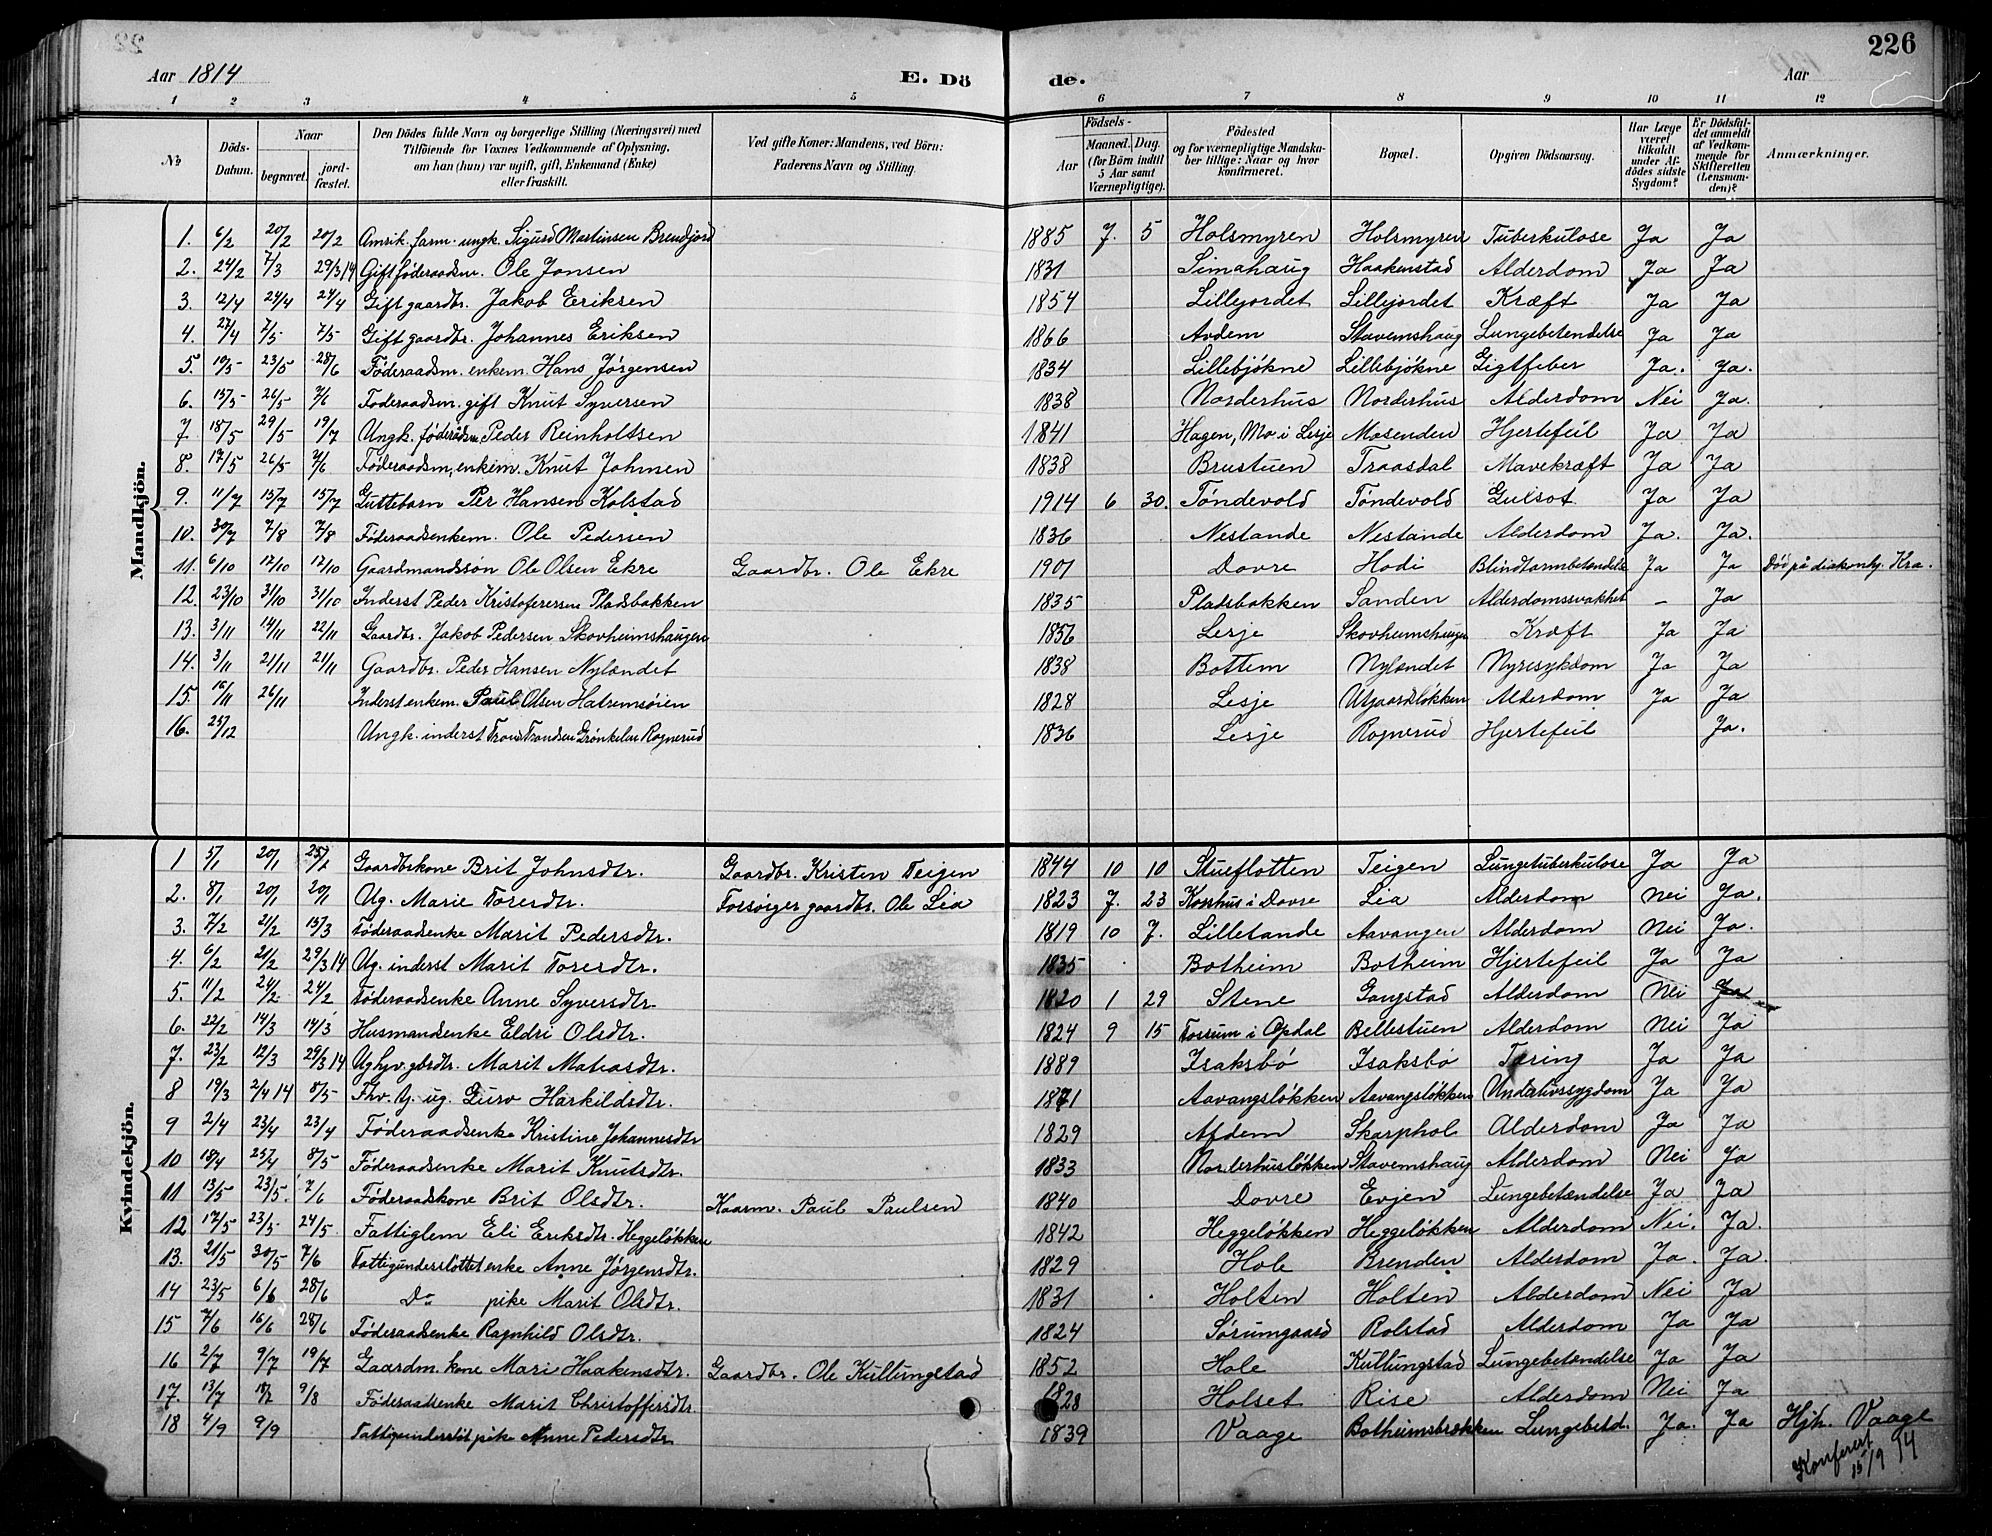 226
Aar 1814
E. Dö de.
Aar
1 2 3 4 5 6 7 8 9 10 11 12
No
Döds-Datum.
Naar
begravet.
jord-fæstet.
Den Dödes fulde Navn og borgerlige Stilling (Næringsvei) med
Tilföiende for Voxnes Vedkommende af Oplysning.
om han (hun) var ugift, gift, Enkemand (Enke)
eller fraskilt.
Ved gifte Koner: Mandens, ved Börn:
Faderens Navn og Stilling.
Födsels-
Aar
Maaned. Dag.
(for Börn indtil
5 Aar samt
Værnepligtige).
Födested
og for værnepligtige Mandska-
ber tillige: Naar og hvor
konfirmeret.
Bopæl.
Opgiven Dödsaarsag.
Har Læge
været
tilkaldt
under Af-
dödes sidste
Sygdom?
Er Dödsfal-
det anmeldt
af Vedkom-
mende for
Skifteretten
(Lensman-
den)?
Anmærkninger.
Mandkjön.
1. 6/2 20/2 20/2 Amrik. farm. ungk. Sigurd Martinsen Brendjord 1885 7. 5 Holsmyren Holsmyren Tuberkulose Ja Ja
2. 24/2 7/3 29/3 14 Gift föderaadsm. Ole Jonsen 1831 Simahaug Haakenstad Alderdom Ja Ja
3. 12/4 24/4 24/4 Gift gaardbr. Jakob Eriksen 1854 Lillejordet Lillejordet Kræft Ja Ja
4. 27/4 7/5 7/5 Gift gaardbr. Johannes Eriksen 1866 Avdem Stavemshaug Lungebetendelse Ja Ja
5. 19/5 23/5 28/6 Föderaadsm. enkem. Hans Jørgensen 1834 Lillebjøkne Lillebjøkne Gigtfeber Ja. Ja.
6. 15/5 26/5 7/6 Føderaadsm. gift Knut Syversen 1838 Norderhus Norderhus Alderdom Nei Ja.
7 18/5 29/5 19/7 Ungk. føderådsm. Peder Reinholtsen 1841 Hagen, Mo i Lesje Mosenden Hjertefeil Ja Ja
8. 17/5 26/5 7/6 Føderaadsm, enkem. Knut Johnsen 1838 Brustuen Traasdal Mavekræft Ja Ja
9. 11/7 15/7 15/7 Guttebarn Per Hansen Kolstad 1914 6 30. Tøndevold Tøndevold Gulsot Ja Ja
10. 30/7 7/8 7/8 Føderaadsenkem. Ole Pedersen 1836 Nestande Nestande Alderdom Ja. Ja.
11. 6/10 12/10 12/10 Gaardmandssøn Ole Olsen Ekre Gaardbr. Ole Ekre 1901 Dovre Hodi Blindtarmbetændelse Ja Ja Død på diakonhj. Kra.
12. 23/10 31/10 31/10 Inderst Peder Kristofersen Pladsbakken 1835 Pladsbakken Sanden Alderdomssvakhet - Ja
13. 3/11 14/11 22/11 Gaardbr. Jakob Pedersen Skovheimshaugen 1856 Lesje Skovheimshaugen Kræft Ja Ja
14. 3/11 21/11 21/11 Gaardbr. Peder Hansen Nylandet 1838 Bottem Nylandet Nyresykdom Ja Ja
15. 16/11 26/11 Inderst enkem. Paul Olsen Hatremsøien 1828 Lesje Utgaardsløkken Alderdom Ja Ja
16. 25/12 Ungk. inderst Trond Trondsen Grønkelen Rognerud 1836 Lesje Rognerud Hjertefeil Ja.
Kvindekjön.
1 5/1 20/1 25/1 Gaardbrkone Brit Johnsdtr. Gaardbr. Kristen Teigen 1844 10 10 Stueflotten Teigen Lungetuberkulose Ja Ja
2. 8/1 20/1 20/1 Ug. Marie Toresdtr. Forsørger gaardbr. Ole Lia 1823 7. 23 Korshus i Dovre Lia Alderdom Nei Ja.
3. 7/2 21/2 15/3 Føderaadsenke Marit Pedersdtr. 1819 10 7. Lilletande Aavangen Alderdom Nei Ja.
4. 6/2 21/2 29/3 14 Ug. inderst Marit Toresdtr. 1835 Botheim Botheim Hjertefeil Ja Ja
5. 11/2 24/2 24/2 Føderaadsenke Anne Syversdtr. 1820 1 29 Stene Gaugstad Alderdom Nei Ja
6. 22/2 14/3 14/3 Husmandsenke Eldri Olsdtr. 1824 9 15 Fossum i Opdal Bellestuen Alderdom Nei Ja
7. 23/2 12/3 29/3 14 Ug hjv. gbrdtr. Marit Matiasdtr. 1889 Isaksbø Isaksbø Tæring Ja Ja
8 19/3 2/4 14 8/5 Thv. Ty. ug. Guro Harkildsdtr. 1871 Aavangsløkken Aavangsløkken Underlivssygdom Ja Ja
9 2/4 23/4 23/4 Føderaadsenke Kristine Johannesdtr 1829 Afdem Skarphol Alderdom Ja Ja
10 18/4 25/4 8/5 Føderaadsenke Marit Knutsdtr. 1833 Norderhusløkken Stavemshaug Alderdom Nei Ja
11 13/5 23/5. 7/6 Føderaadskone Brit Olsdtr. Kaarm. Paul Paulsen 1840 Dovre Evjen Lungebetændelse Ja Ja
12 17/5 23/5 24/5 Fattiglem Eli Eriksdtr. Heggeløkken 1842 Heggeløkken Heggeløkken Alderdom Nei. Ja.
13. 21/5 30/5 7/6 Fattigunderstøttet enke Anne Jørgensdtr. 1829 Hole Brenden Alderdom Ja. Ja.
14 23/5 6/6 28/6 Do pike Marit Olsdtr. 1831 Holten Holten Alderdom Nei Ja
15 7/6 16/6 28/6 Føderaadsenke Ragnhild Olsdtr. 1824 Sørumgaard Rolstad Alderdom Ja Ja
16 2/7 9/7 19/7 Gaardm. kone Mari Haakensdtr. Gaardbr. Ole Kullungstad 1852 Hole Kullungstad Lungebetændelse Ja Ja
17. 13/7 18/7 9/8 Føderaadsenke Marit Christoffersdtr. 1828 Holset Rise Alderdom Nei Ja
18 4/9 9/9 Fattigunderstøt pike Anne Pedersdtr 1839 Vaage Botheimsbrækken Lungebetd. Ja. Ja Hjh. Vaage
Konferert
15/9 14